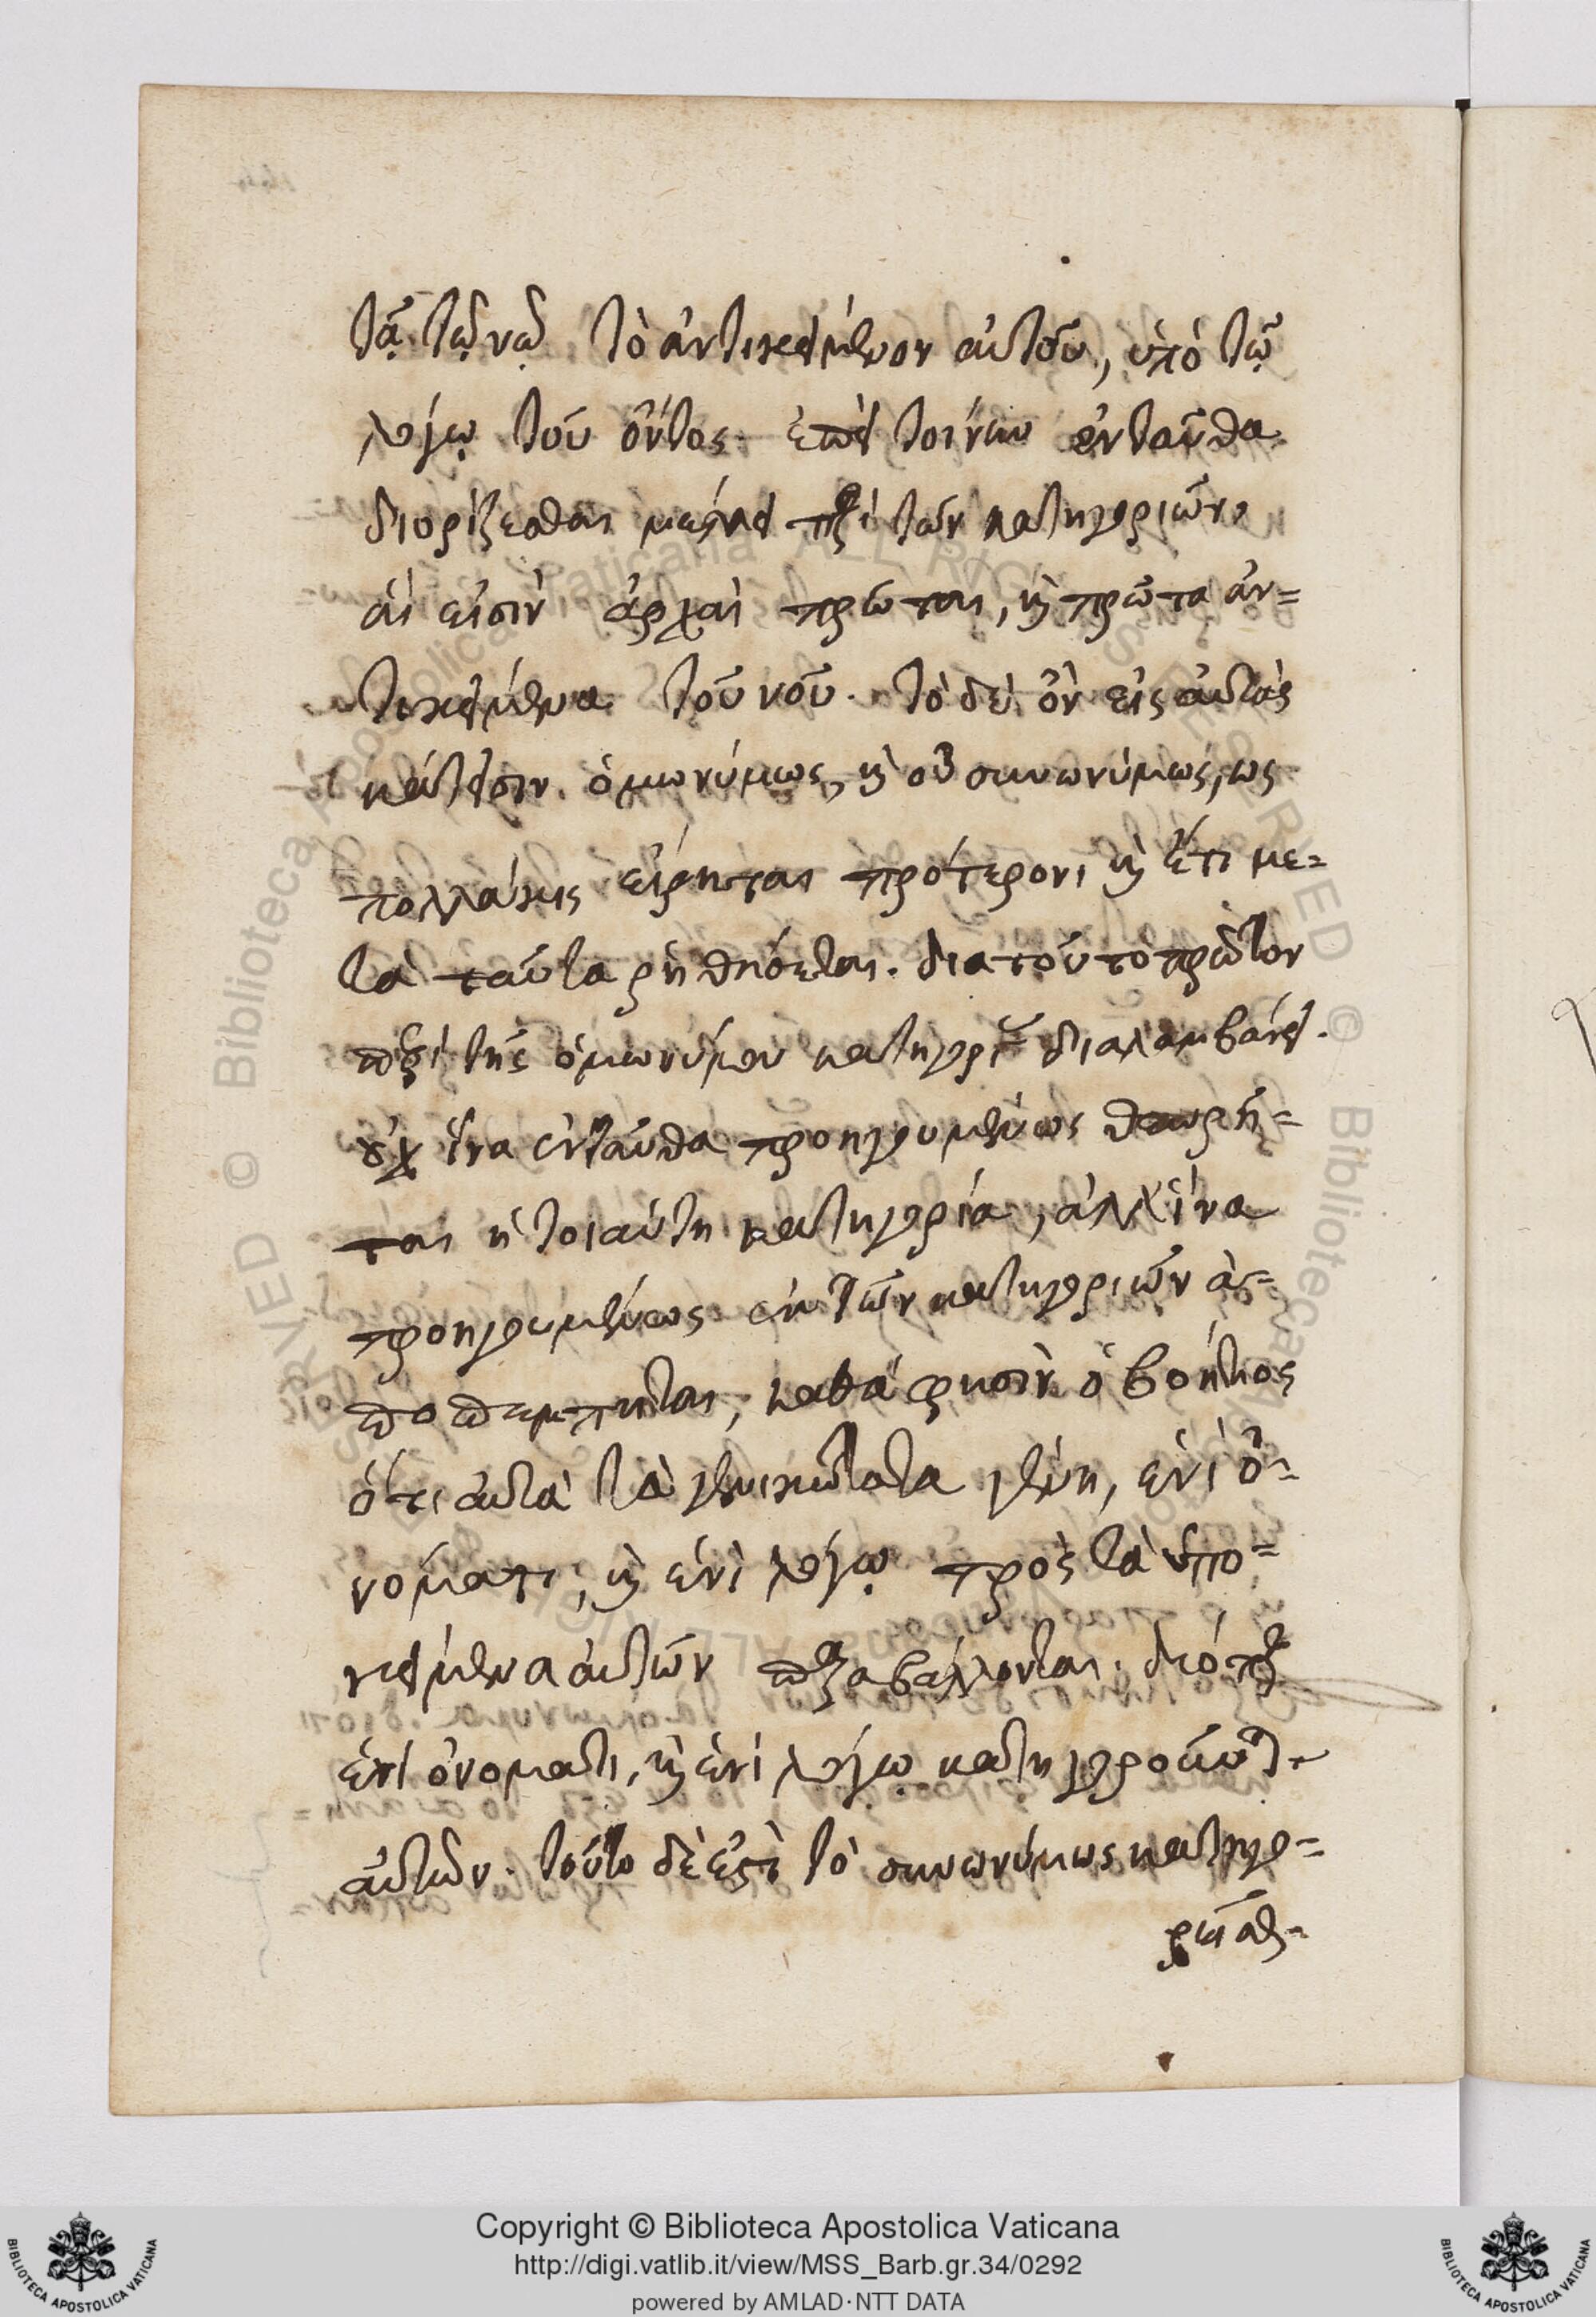 τᾷ τῷ νῷ τὸ ἀντικείμενον αὐτοῦ, ὑπὸ τῷ
λόγῳ τοῦ ὄντος. ἐπεὶ τοίνυν ἐνταῦθα
διορίζεσθαι μέλλει περὶ τῶν κατηγοριῶν,
αἵ εἰσιν ἀρχαὶ πρῶται, καὶ πρῶτα ἀν=
τικείμενα τοῦ νοῦ. τὸ δὲ ὂν εἰς αὐτὰς
κάτεισιν ὁμωνύμως, καὶ οὐ συνωνύμως, ὡς
πολλάκις εἴρηται πρότερον, καὶ ἔτι με=
τὰ ταῦτα ῥηθήσεται. διὰ τοῦτο πρῶτον
περὶ τῆς ὁμωνύμου κατηγορίας διαλαμβάνει.
οὐχ ἵνα ἐνταῦθα προηγουμένως θεωρῆ=
ται ἡ τοιαύτη κατηγορία, ἀλλ' ἵνα
προηγουμένως ἐκ τῶν κατηγοριῶν ἀ=
ποπέμπηται, καθά φησιν ὁ βοήτιος
ὅτι αὐτὰ τὰ γενικώτατα γένη, ἑνὶ ὀ=
νόματι, καὶ ἑνὶ λόγῳ πρὸς τὰ ὑπο=
κείμενα αὐτῶν παραβάλλονται. διόπερ
ἑνὶ ὀνόματι, καὶ ἑνὶ λόγῳ κατηγοροῦνται
αὐτῶν. τοῦτο δὲ ἐστὶ τὸ συνωνύμως κατηγο=
ρεῖσθαι
Copyright © Biblioteca Apostolica Vaticana
http://digi.vatlib.it/view/MSS_Barb.gr.34/0292
powered by AMLAD·NTT DATA
BIBLIOTECA APOSTOLICA VATICANA
BIBLIOTECA APOSTOLICA VATICANA